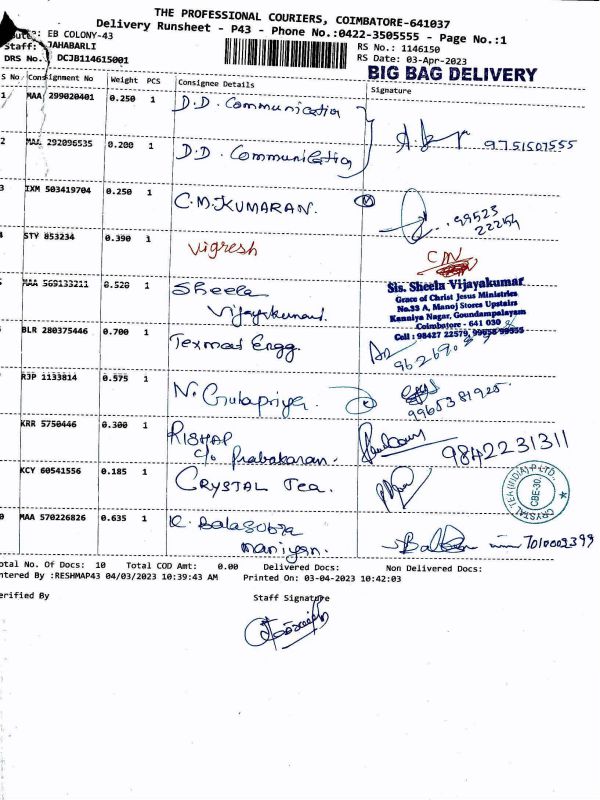 THE PROFESSIONAL COURIERS, COIMBATORE-641037
Delivery Runsheet - P43 - Phone No.:0422-3505555 - Page No.:1
EB COLONY-43
Staff: JAHABARLI
DRS No.: DCJB114615001
RS No.: 1146150
RS Date: 03-Apr-2023
BIG BAG DELIVERY
S No Consignment No Weight PCS Consignee Details Signature
1 MAA 299020401 0.250 1 D.D. Communication
9751507555
2 MAA 292096535 0.200 1 D.D. Communication
3 IXM 503419704 0.250 1 C.M.KUMARAN.
99523
22254
STY 853234 0.390 1 Vignesh
MAA 569133211 0.520 1 Sheela
Vijayakumar.
Sis. Sheela Vijayakumar
Grace of Christ Jesus Ministries
No.33 A, Manoj Stores Upstairs
Kanniya Nagar, Goundampalayam
Coimbatore - 641 030
Cell : 98427 22579,
BLR 280375446 0.700 1 Texmas Engg.
RJP 1133814 0.575 1 N. Gulapriya.
9965381925.
KRR 5750446 0.300 1 RISHAP
c/o Prabakaran.
9842231311
KCY 60541556 0.185 1 CRYSTAL Tea.
CRYSTAL TEA (INDIA) P LTD.,
CBE-30.
MAA 570226826 0.635 1 R. Balasubra
maniyan.
7010002399
otal No. Of Docs: 10 Total COD Amt: 0.00 Delivered Docs: Non Delivered Docs:
ntered By :RESHMAP43 04/03/2023 10:39:43 AM Printed On: 03-04-2023 10:42:03
erified By Staff Signature